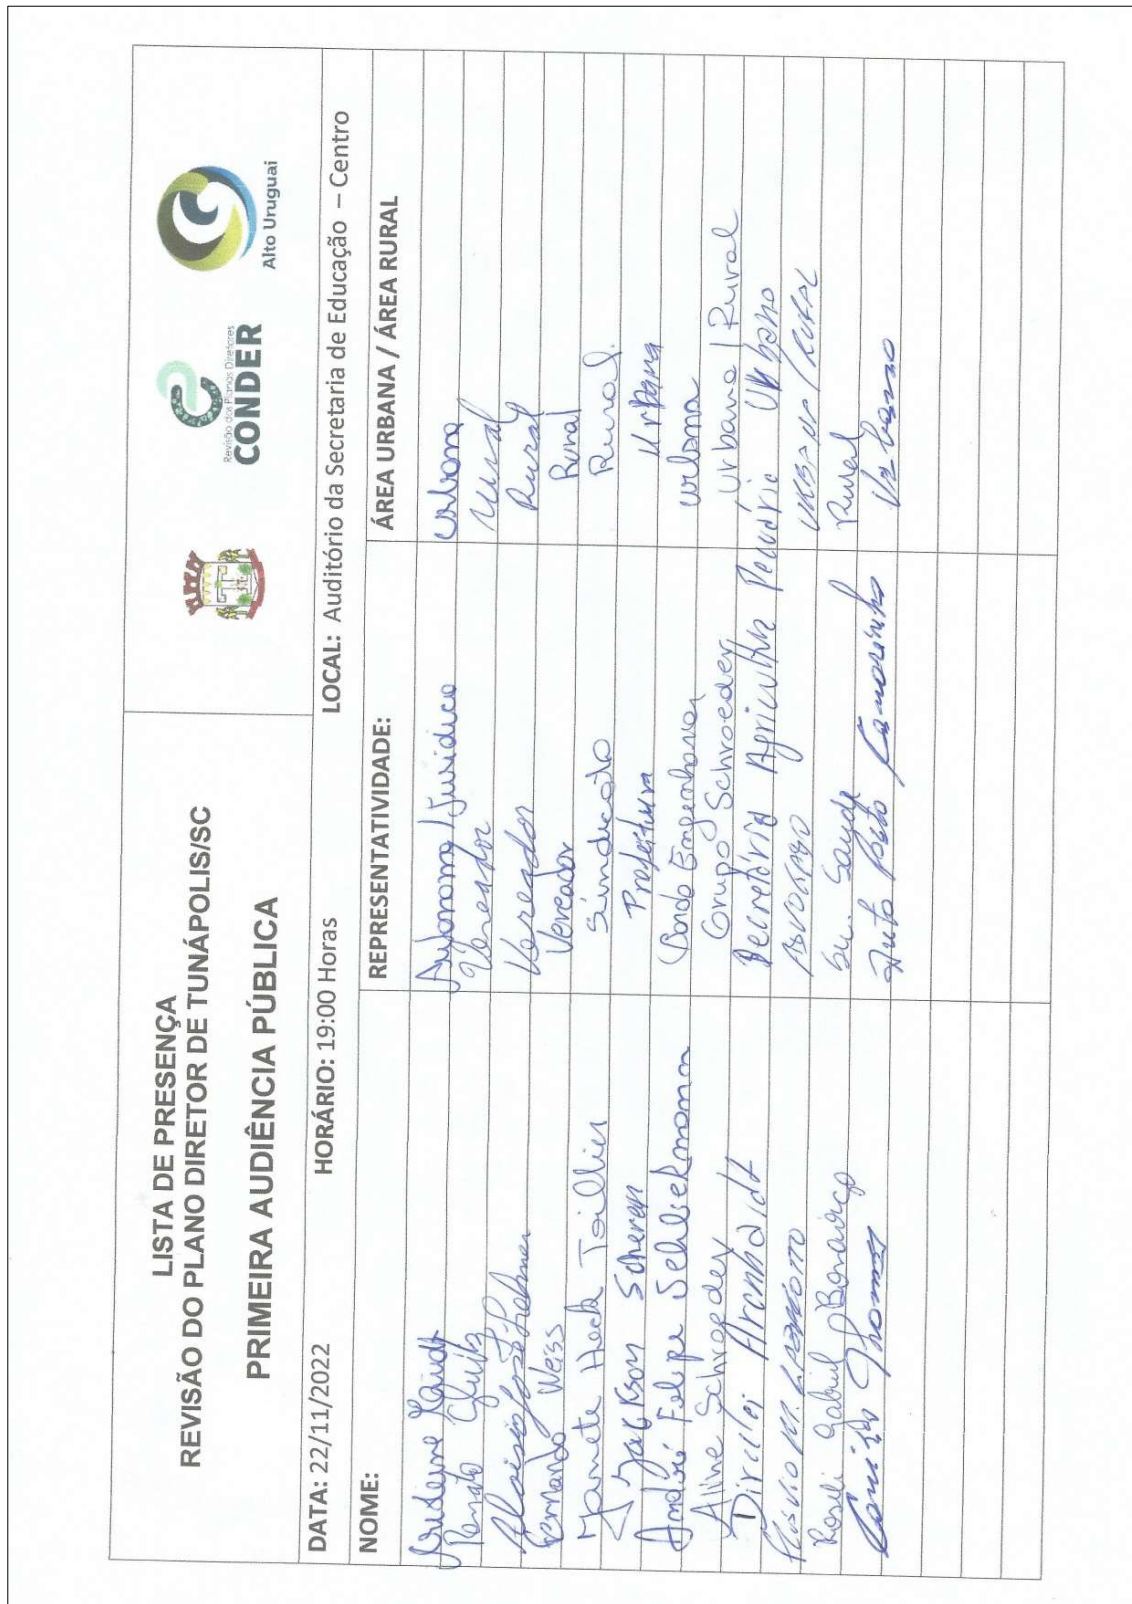 LISTA DE PRESENÇA
REVISÃO DO PLANO DIRETOR DE TUNÁPOLIS/SC
PRIMEIRA AUDIÊNCIA PÚBLICA
Revisão dos Planos Diretores
CONDER
Alto Uruguai
DATA: 22/11/2022 HORÁRIO: 19:00 Horas LOCAL: Auditório da Secretaria de Educação – Centro
NOME: REPRESENTATIVIDADE: ÁREA URBANA / ÁREA RURAL
Jurídica Urbana
Renato Vereador Rural
Aloisio José Lehmen Vereador Rural
Fernando Weiss Vereador Rural
Janete Heck Sindicato Rural.
Jackson Scheren Prefeitura Urbana
André Felipe Schlickmann Engenharia Urbana
Aline Schroeder Grupo Schroeder Urbana / Rural
Dirclei Arenhardt Secretária Agricultura Pecuária Urbano
ADVOGADO URBANO / RURAL
Roseli Gabriel Sec. Saúde Rural
Thomas Auto Posto Urbano